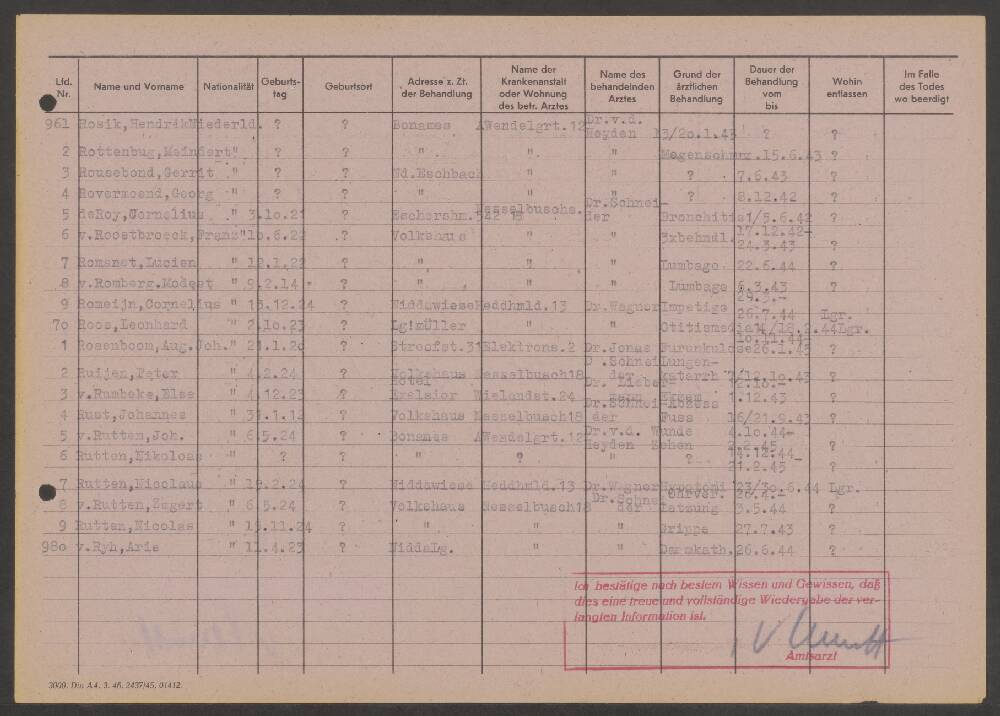 Lfd. Nr. Name und Vorname Nationalität Geburts- tag Geburtsort Adresse z. Zt. der Behandlung Name der Krankenanstalt oder Wohnung des betr. Arztes Name des behandelnden Arztes Grund der ärztlichen Behandlung Dauer der Behandlung vom bis Wohin entlassen Im Falle des Todes wo beerdigt
961 Rosik,Hendrik Niederld. ? ? Bonames AWendelgrt.12 Dr.v.d. Heyden 13/20.1.43 ? ?
2 Rottenbug,Meindert " ? ? " " " Magenschmrz.15.6.43 ?
3 Rousebond,Gerrit " ? ? Nd.Eschbach " " ? 7.6.43 ?
4 Rovermoend,Georg " ? ? " " " ? 8.12.42 ?
5 deRoy,Cornelius " 3.10.21 ? Eschershm.542 Nesselbuschs. 18 Dr.Schnei- der Bronchitis 1/5.6.42 ?
6 v.Roostbroeck,Frans " 10.6.22 ? Volkshaus " " 3xbehndl. 17.12.42- 24.3.43 ?
7 Romanet,Lucien " 12.1.22 ? " " " Lumbago 22.6.44 ?
8 v.Romberg.Modest " 9.2.14 ? " " " Lumbago 6.3.43 ?
9 Romeijn,Cornelius " 15.12.24 ? Niddawiese Heddhmld.13 Dr.Wagner Impetigo 29.5.- 26.7.44 Lgr.
70 Roos,Leonhard " 2.10.23 ? Lg!müller " " Otitismedia 14/18.2.44 Lgr.
1 Rosenboom,Aug.Joh. " 21.1.20 ? Stroofst.31 Elektrons.2 Dr.Jonas Furunkulose 10.11.44- 26.1.45 ?
2 Ruijen,Peter " 4.2.24 ? Volkshaus Nesselbusch18 D .Schnei der Lungen- katarrh 7/12.10.43 ?
3 v.Rumbeke,Else " 4.12.23 ? Hotel Exelsior Wielandst.24 Dr. Lieber- mann Ekzem 12.10.- 1.12.43 ?
4 Rust,Johannes " 31.1.14 ? Volkshaus Nesselbusch18 Dr.Schnei- der Fuss 16/21.9.43 ?
5 v.Rutten,Joh. " 6.5.24 ? Bonames AWendelgrt.12 Dr.v.d. Heyden Wunde Zehen 4.10.44- 2.2.45 ?
6 Rutten,Nikoloas " ? ? " ? " ? 14.12.44 21.2.45 ?
7 Rutten,Nicolaus " 19.2.24 ? Niddawiese Heddhmld.13 Dr.Wagner 23/30.6.44 Lgr.
8 v.Rutten,Zegert " 6.5.24 ? Volkshaus Nesselbusch18 Dr.Schnei der Ohrver- letzung 26.4.- 3.5.44 ?
9 Rutten,Nicolas " 15.11.24 ? " " " Grippe 27.7.43 ?
980 v.Ryh,Arie " 11.4.23 ? NiddaLg. " " Darmkath. 26.6.44 ?
Ich bestätige nach bestem Wissen und Gewissen, daß
dies eine treue und vollständige Wiedergabe der ver-
langten Information ist.
Amtsarzt
3009. Din A4. 3. 46. 2437/45. 01412